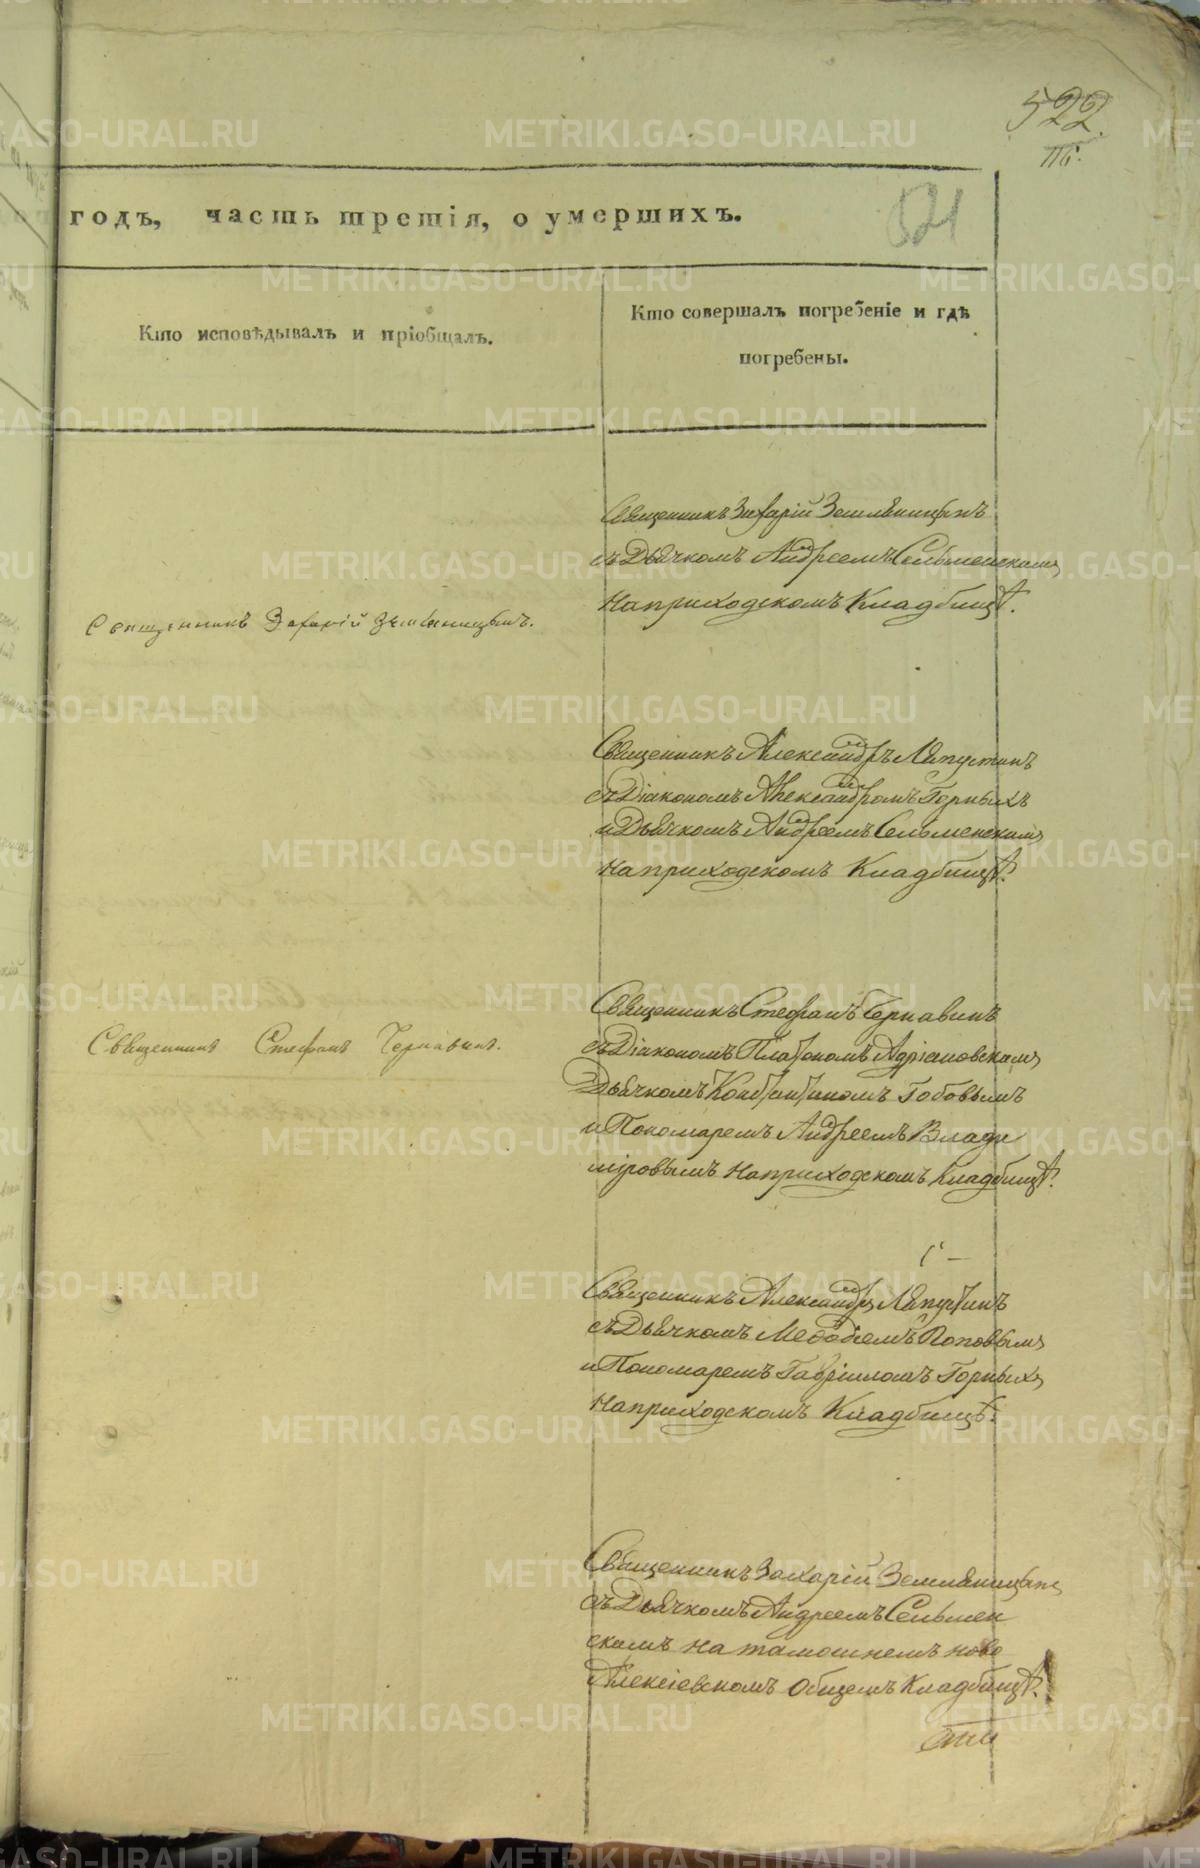 522.
годъ, часть третія, о умершихъ.
521
Кто исповѣдывалъ и пріобщалъ.
Кто совершалъ погребеніе и гдѣ
погребены.
Священникъ Захарій Земляницынъ
съ Дьячкомъ Андреемъ Сельменскимъ
на приходскомъ Кладбищѣ.
Священникъ Захарій Земляницынъ.
Священникъ Александръ Ляпустинъ
съ Діакономъ Александромъ Горныхъ
и Дьячкомъ Андреемъ Сельменскимъ
на приходскомъ Кладбищѣ.
Священникъ Стефанъ Чернавинъ
съ Діакономъ Платономъ Адріановскимъ
Священникъ Стефанъ Чернавинъ.
Дьячкомъ Константиномъ
и Пономаремъ Андреемъ Влади
міровымъ на приходскомъ Кладбищѣ.
Священникъ Александръ Ляпустинъ
съ Дьячкомъ Меѳодіемъ Поповымъ
и Пономаремъ Гавріиломъ Горныхъ
на приходскомъ Кладбищѣ.
Священникъ Захарій Земляницынъ
съ Дьячкомъ Андреемъ Сельмен
скимъ на тамошнемъ ново
Алексіевскомъ общемъ Кладбищѣ.
METRIKI.GASO-URAL.RU